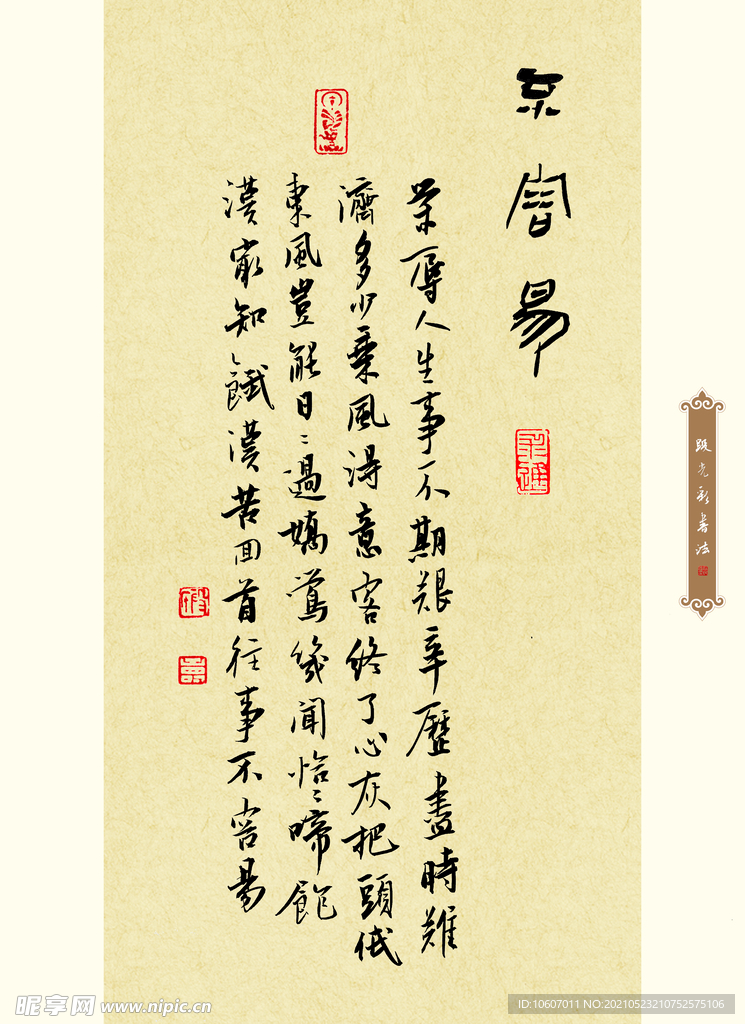 不容易
榮辱人生事不期艱辛歷盡時難
濟多少乘風得意客終了心灰把頭低
東風豈能日〻過嬌鶯幾聞恰〻啼飽
漢家知餓漢苦回首往事不容易
段光彩書法
昵享网 www.nipic.cn
ID:10607011 NO:20210523210752575106